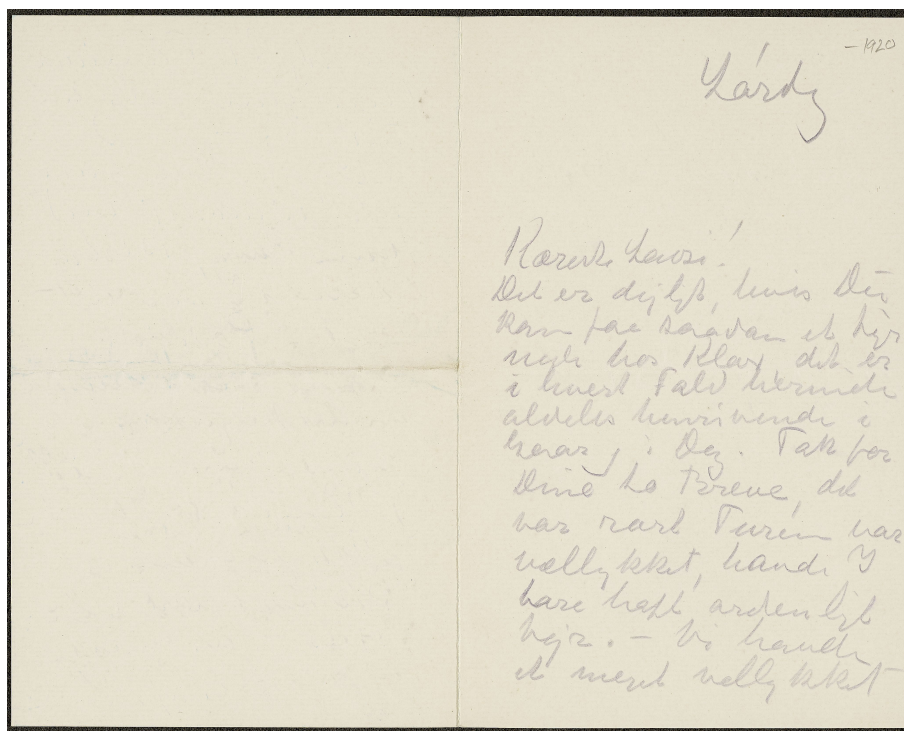 - 1920
Lördg
Kæreste Lausi!
Det er dejligt, hvis Du
kan faa saadan et
hos Klax, det er
i hvert Fald herinde
aldeles henrivende i
, i Dag. Tak for
Dine to Breve, det
var rart Turen var
vellykket, havde I
bare haft ordenligt
Vejr. - Vi havde
et meget vellykket